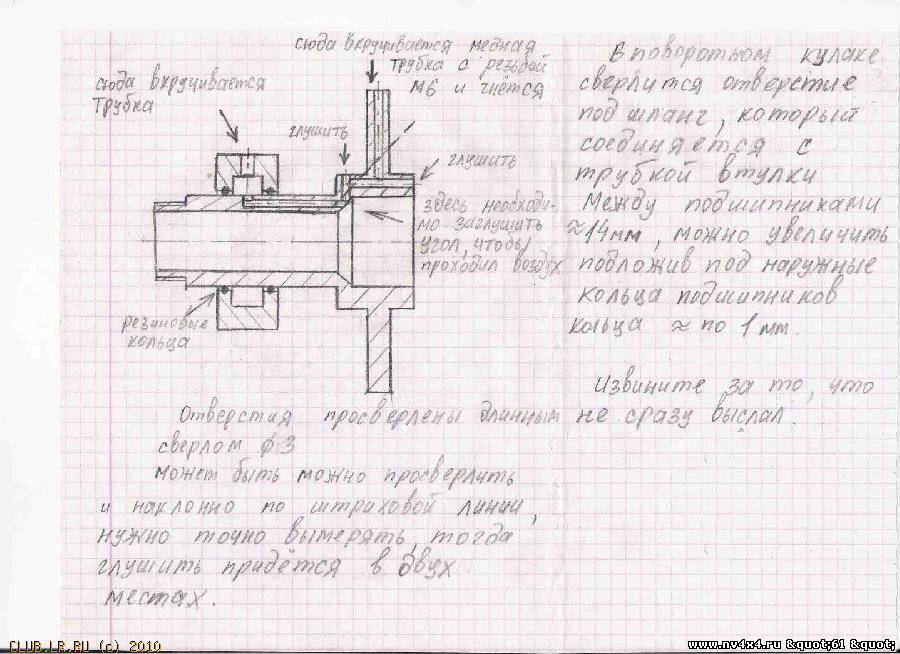 сюда вкручивается медная
трубка с резьбой
М6 и гнётся
сюда вкручивается
трубка
глушить
глушить
здесь необходи-
мо заглушить
угол, чтобы
проходил воздух
резиновые
кольца
Отверстия просверлены длинным
сверлом ϕ3
может быть можно просверлить
и наклонно по штриховой линии,
нужно точно вымерять, тогда
глушить придётся в двух
местах.
В поворотном кулаке
сверлится отверстие
под шланг, который
соединяется с
трубкой втулки
Между подшипниками
≈14мм, можно увеличить
подложив под наружные
кольца подшипников
кольца ≈ по 1 мм.
Извините за то, что
не сразу выслал.
CLUB.LR.RU (c) 2010
www.nv4x4.ru &quot;61 &quot;